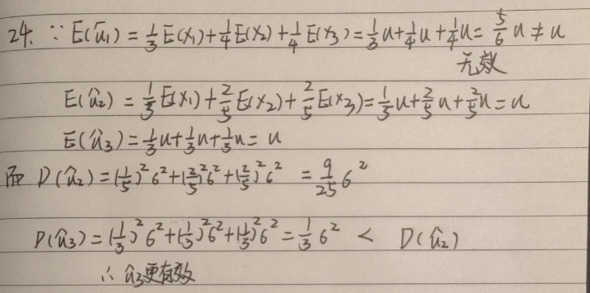 24. ∵ E(û₁) = 1/3 E(x₁) + 1/4 E(x₂) + 1/4 E(x₃) = 1/3 u + 1/4 u + 1/4 u = 5/6 u ≠ u
无效
E(û₂) = 1/5 E(x₁) + 2/5 E(x₂) + 2/5 E(x₃) = 1/5 u + 2/5 u + 2/5 u = u
E(û₃) = 1/3 u + 1/3 u + 1/3 u = u
而 D(û₂) = (1/5)² 6² + (2/5)² 6² + (2/5)² 6² = 9/25 6²
D(û₃) = (1/3)² 6² + (1/3)² 6² + (1/3)² 6² = 1/3 6² < D(û₂)
∴ û₃更有效